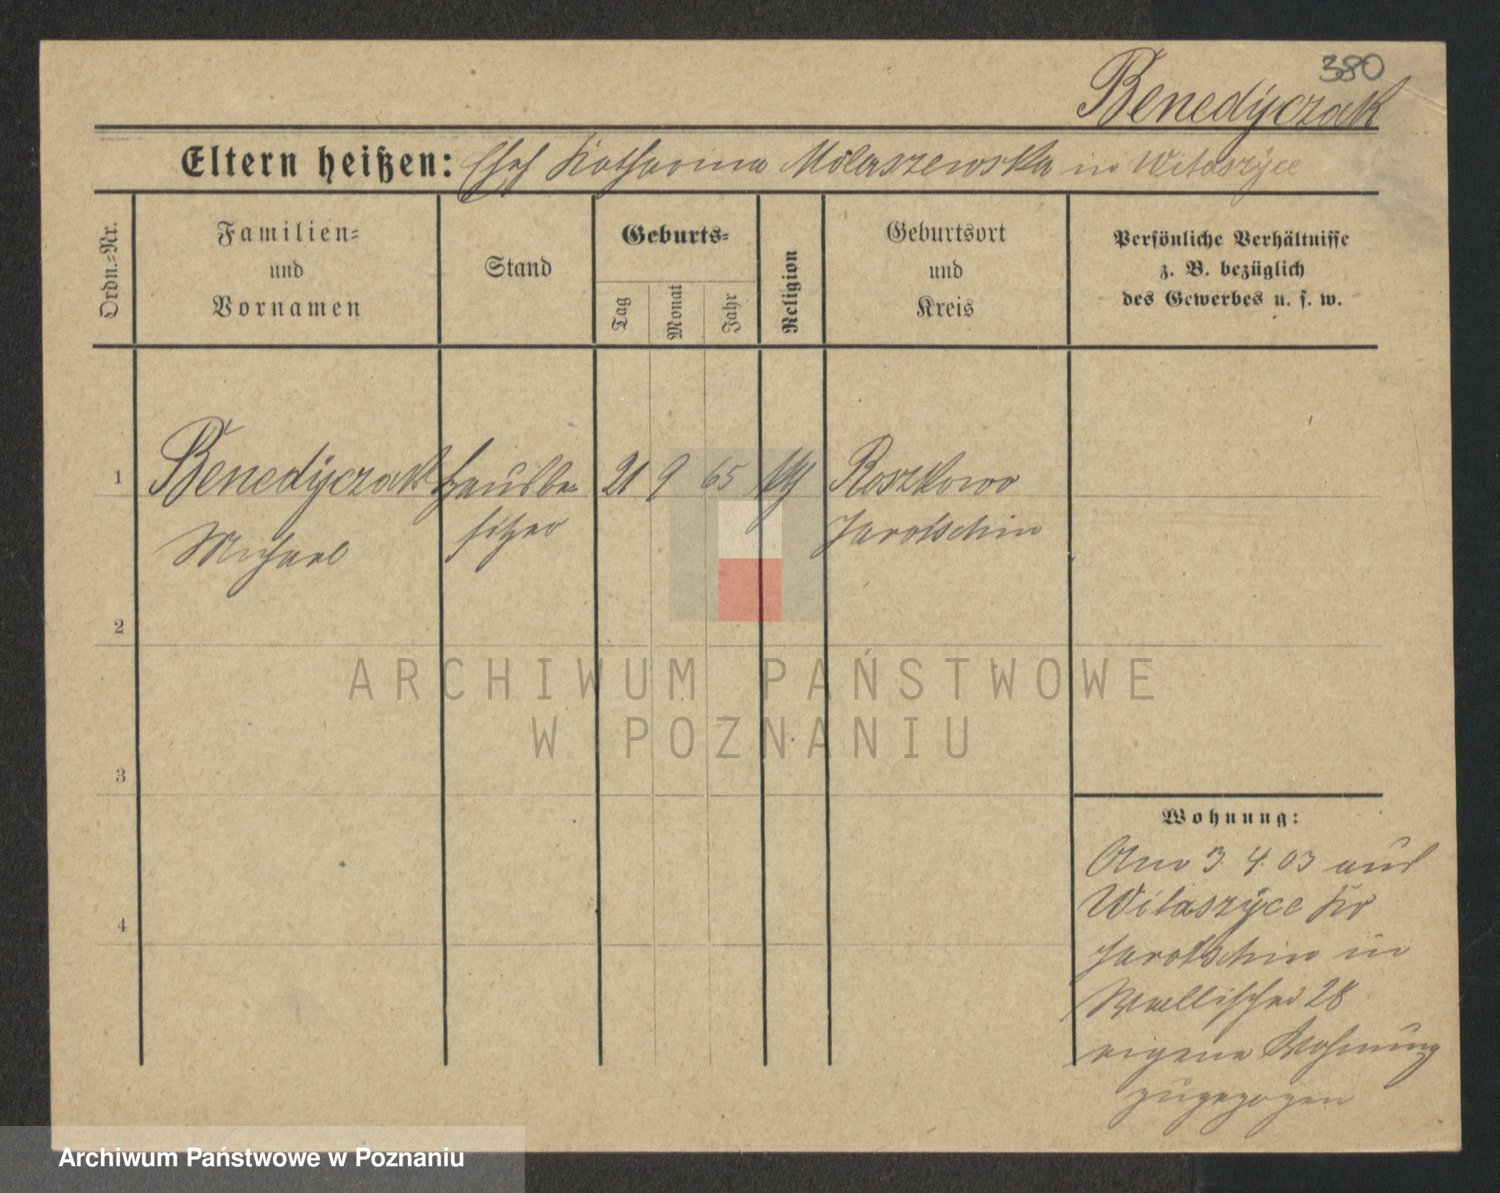 380
Benedÿczak
Eltern heißen: Ehef Katharina Milaszewska in Witaszÿce
Ordn.-Nr.
Familien-
und
Vornamen
Stand
Geburts-
Tag
Monat
Jahr
Religion
Geburtsort
und
Kreis
Persönliche Verhältnisse
z. B. bezüglich
des Gewerbes u. s. w.
1 Benedÿczak Hausbe- 21 9 65 Roszkowo
Michael sitzer Jarotschin
2
3
4
Wohnung:
Am 3. 4. 03 aus
Witaszÿce Kr
Jarotschin in
Wallischei 28
eigene Wohnung
zugezogen
ARCHIWUM PAŃSTWOWE
W POZNANIU
Archiwum Państwowe w Poznaniu